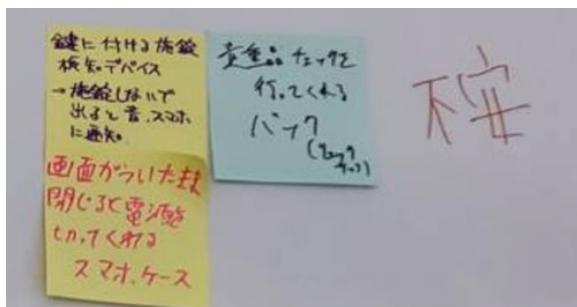 鍵に付ける施錠
検知デバイス
→施錠しないで
出ると音、スマホ
に通知。
画面がついたまま
閉じると電源を
切ってくれる
スマホケース
貴重品チェックを
行ってくれる
バック
不安